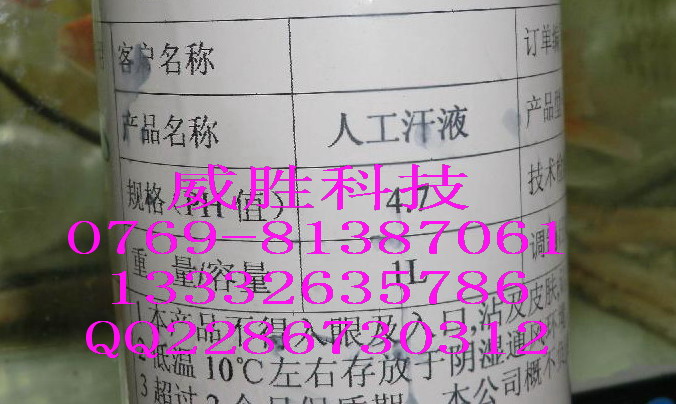 客户名称 订单编
产品名称 人工汗液 产品型
威胜科技
规格(PH值) 4.7 技术
0769-81387061
重 量/容量 1L 调
13332635786
1 本产品不得入眼及入口,沾及皮肤,
QQ2286730312
2 低温 10℃左右存放于阴湿通
3 超过 本公司概不负